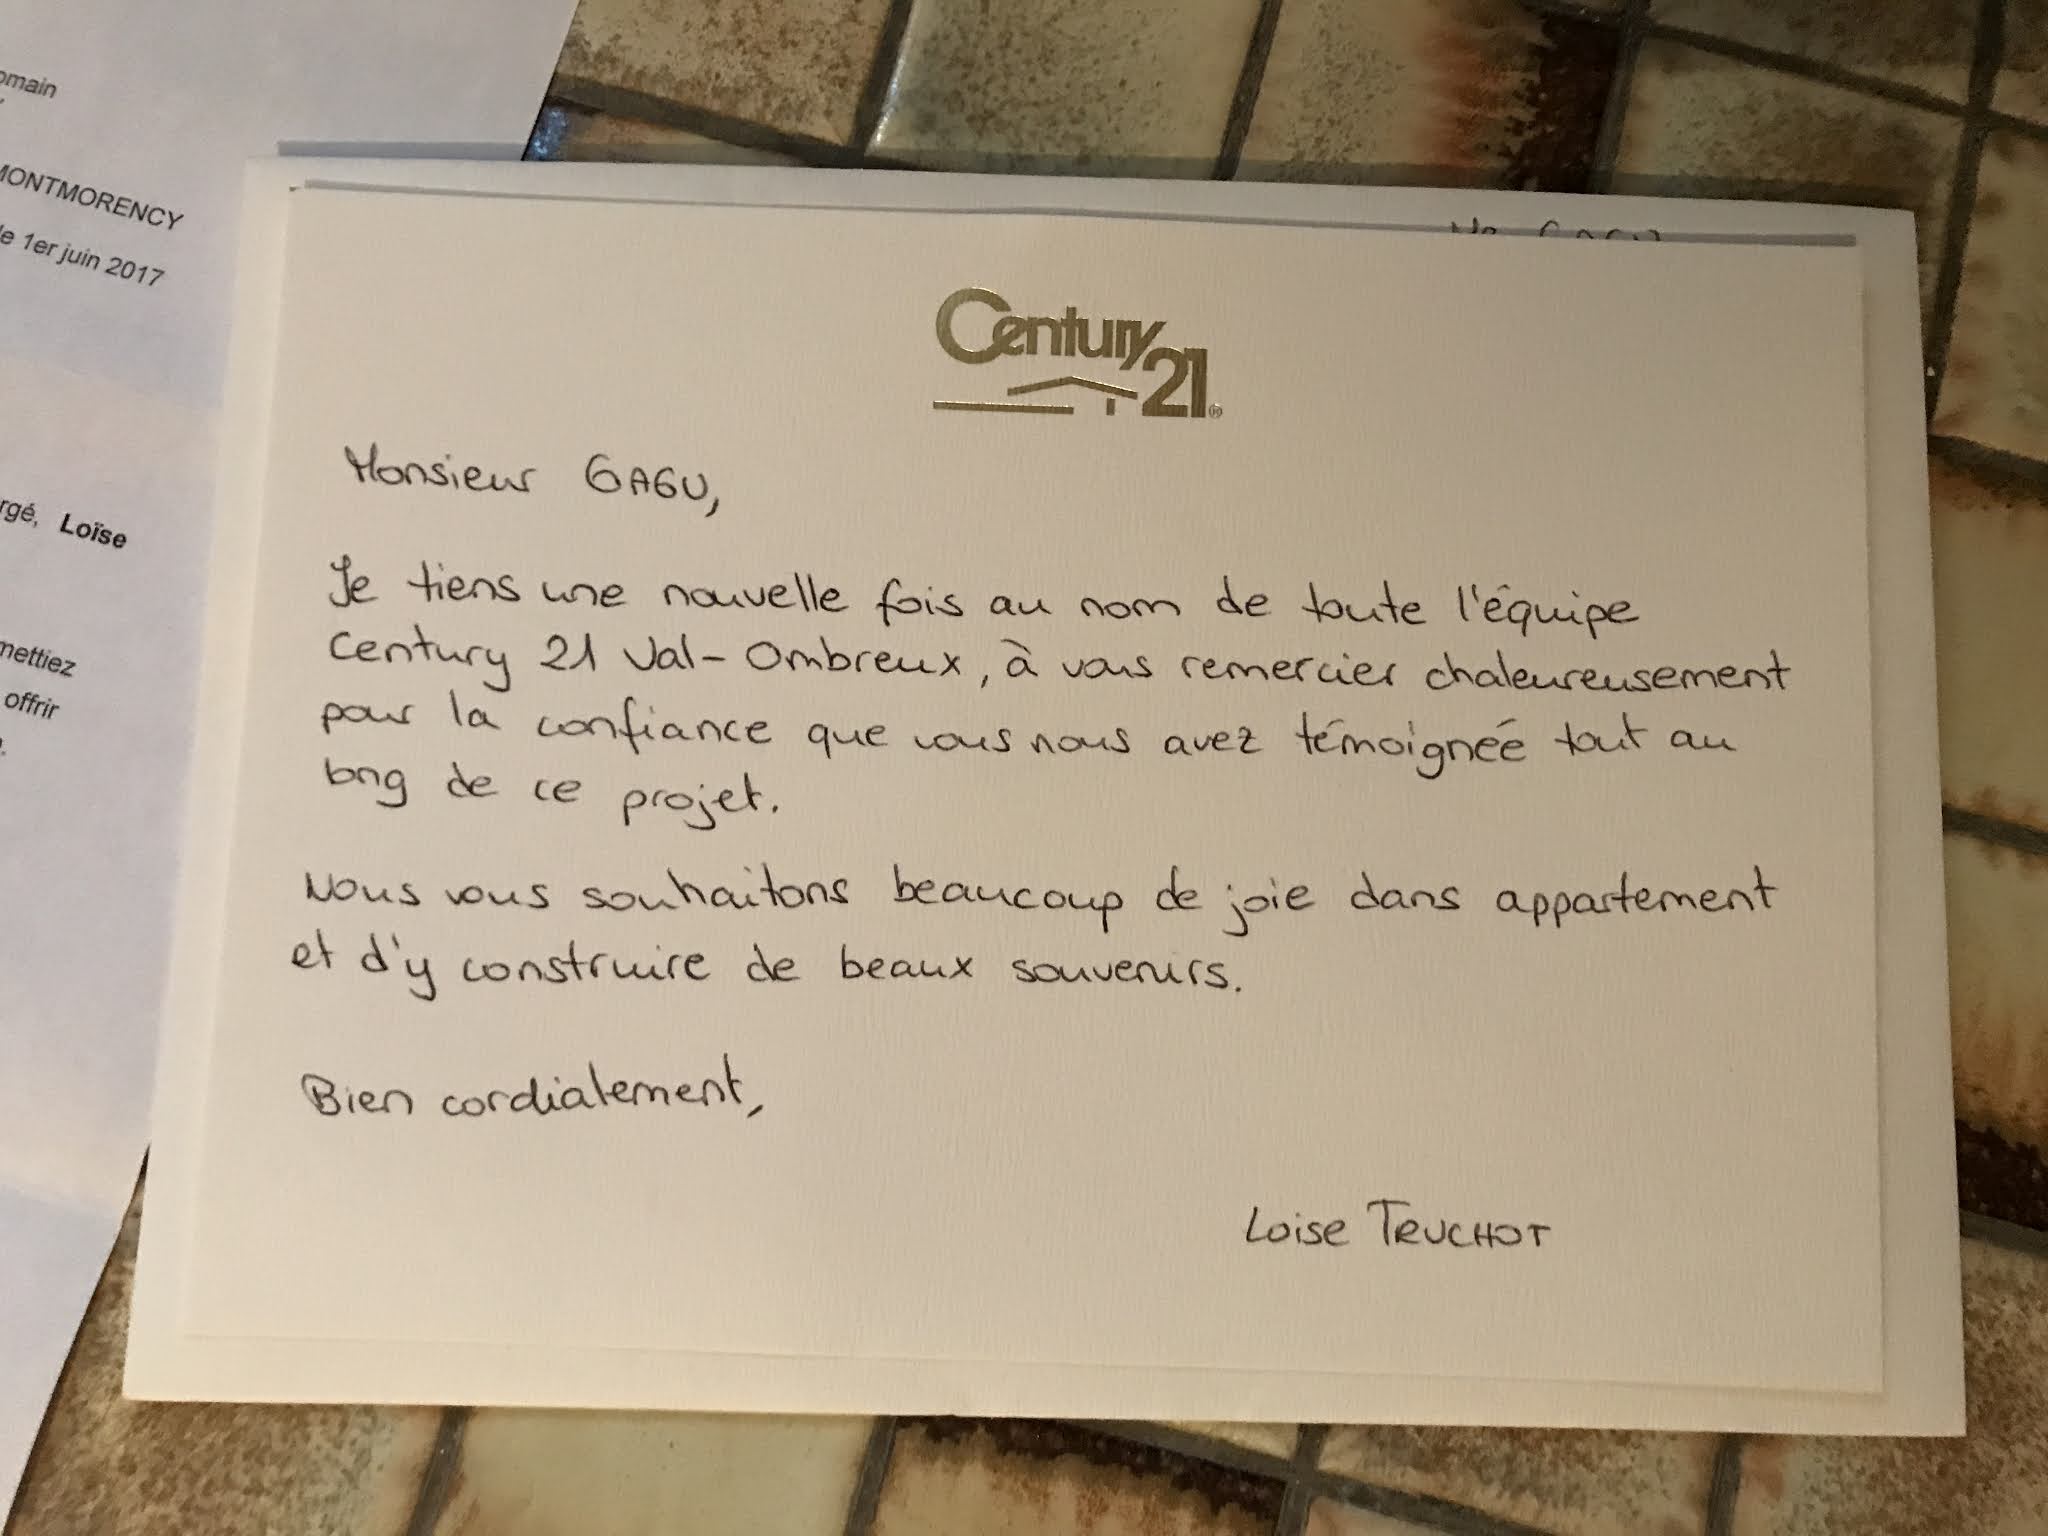 omain
MONTMORENCY
le 1er juin 2017
rgé, Loïse
mettiez
offrir
Century 21®
Monsieur GAGU,
Je tiens une nouvelle fois au nom de toute l'équipe
Century 21 Val-Ombreux, à vous remercier chaleureusement
pour la confiance que vous nous avez témoignée tout au
long de ce projet.
Nous vous souhaitons beaucoup de joie dans appartement
et d'y construire de beaux souvenirs.
Bien cordialement,
Loise TRUCHOT